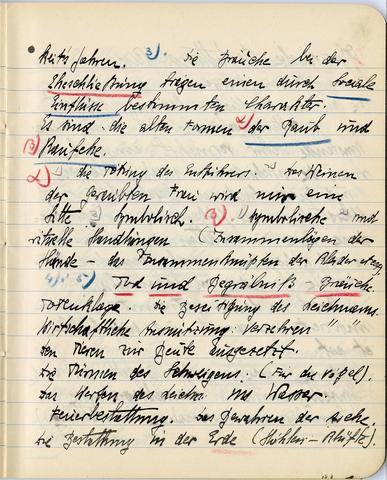 keits Jahren. 3). Die Bräuche bei der
Eheschließung tragen einen durch soziale
Einflüsse bestimmten Charakter.
Es sind die alten Formen der Raub und
Kaufehe.
die Tötung des Entführers. Das Weinen
der geraubten Frau wird nur eine
Sitte symbolisch. 3). symbolische und
rituelle Handlungen (Zusammenlegen der
Hände – das Zusammenknüpfen der Kleider etz.
Tod und Begräbniß – Bräuche
Totenklage. Die Beseitigung des Leichnams.
Wirtschaftliche Ausnützung: Verzehren " "
den Tieren zur Beute ausgesetzt.
Die Türme des Schweigens. (Für die Vögel).
Das Werfen des Leichn. ins Wasser.
Feuerbestattung. Das Bewahren der Asche.
Die Bestattung in der Erde (Höhlen – Klüfte).